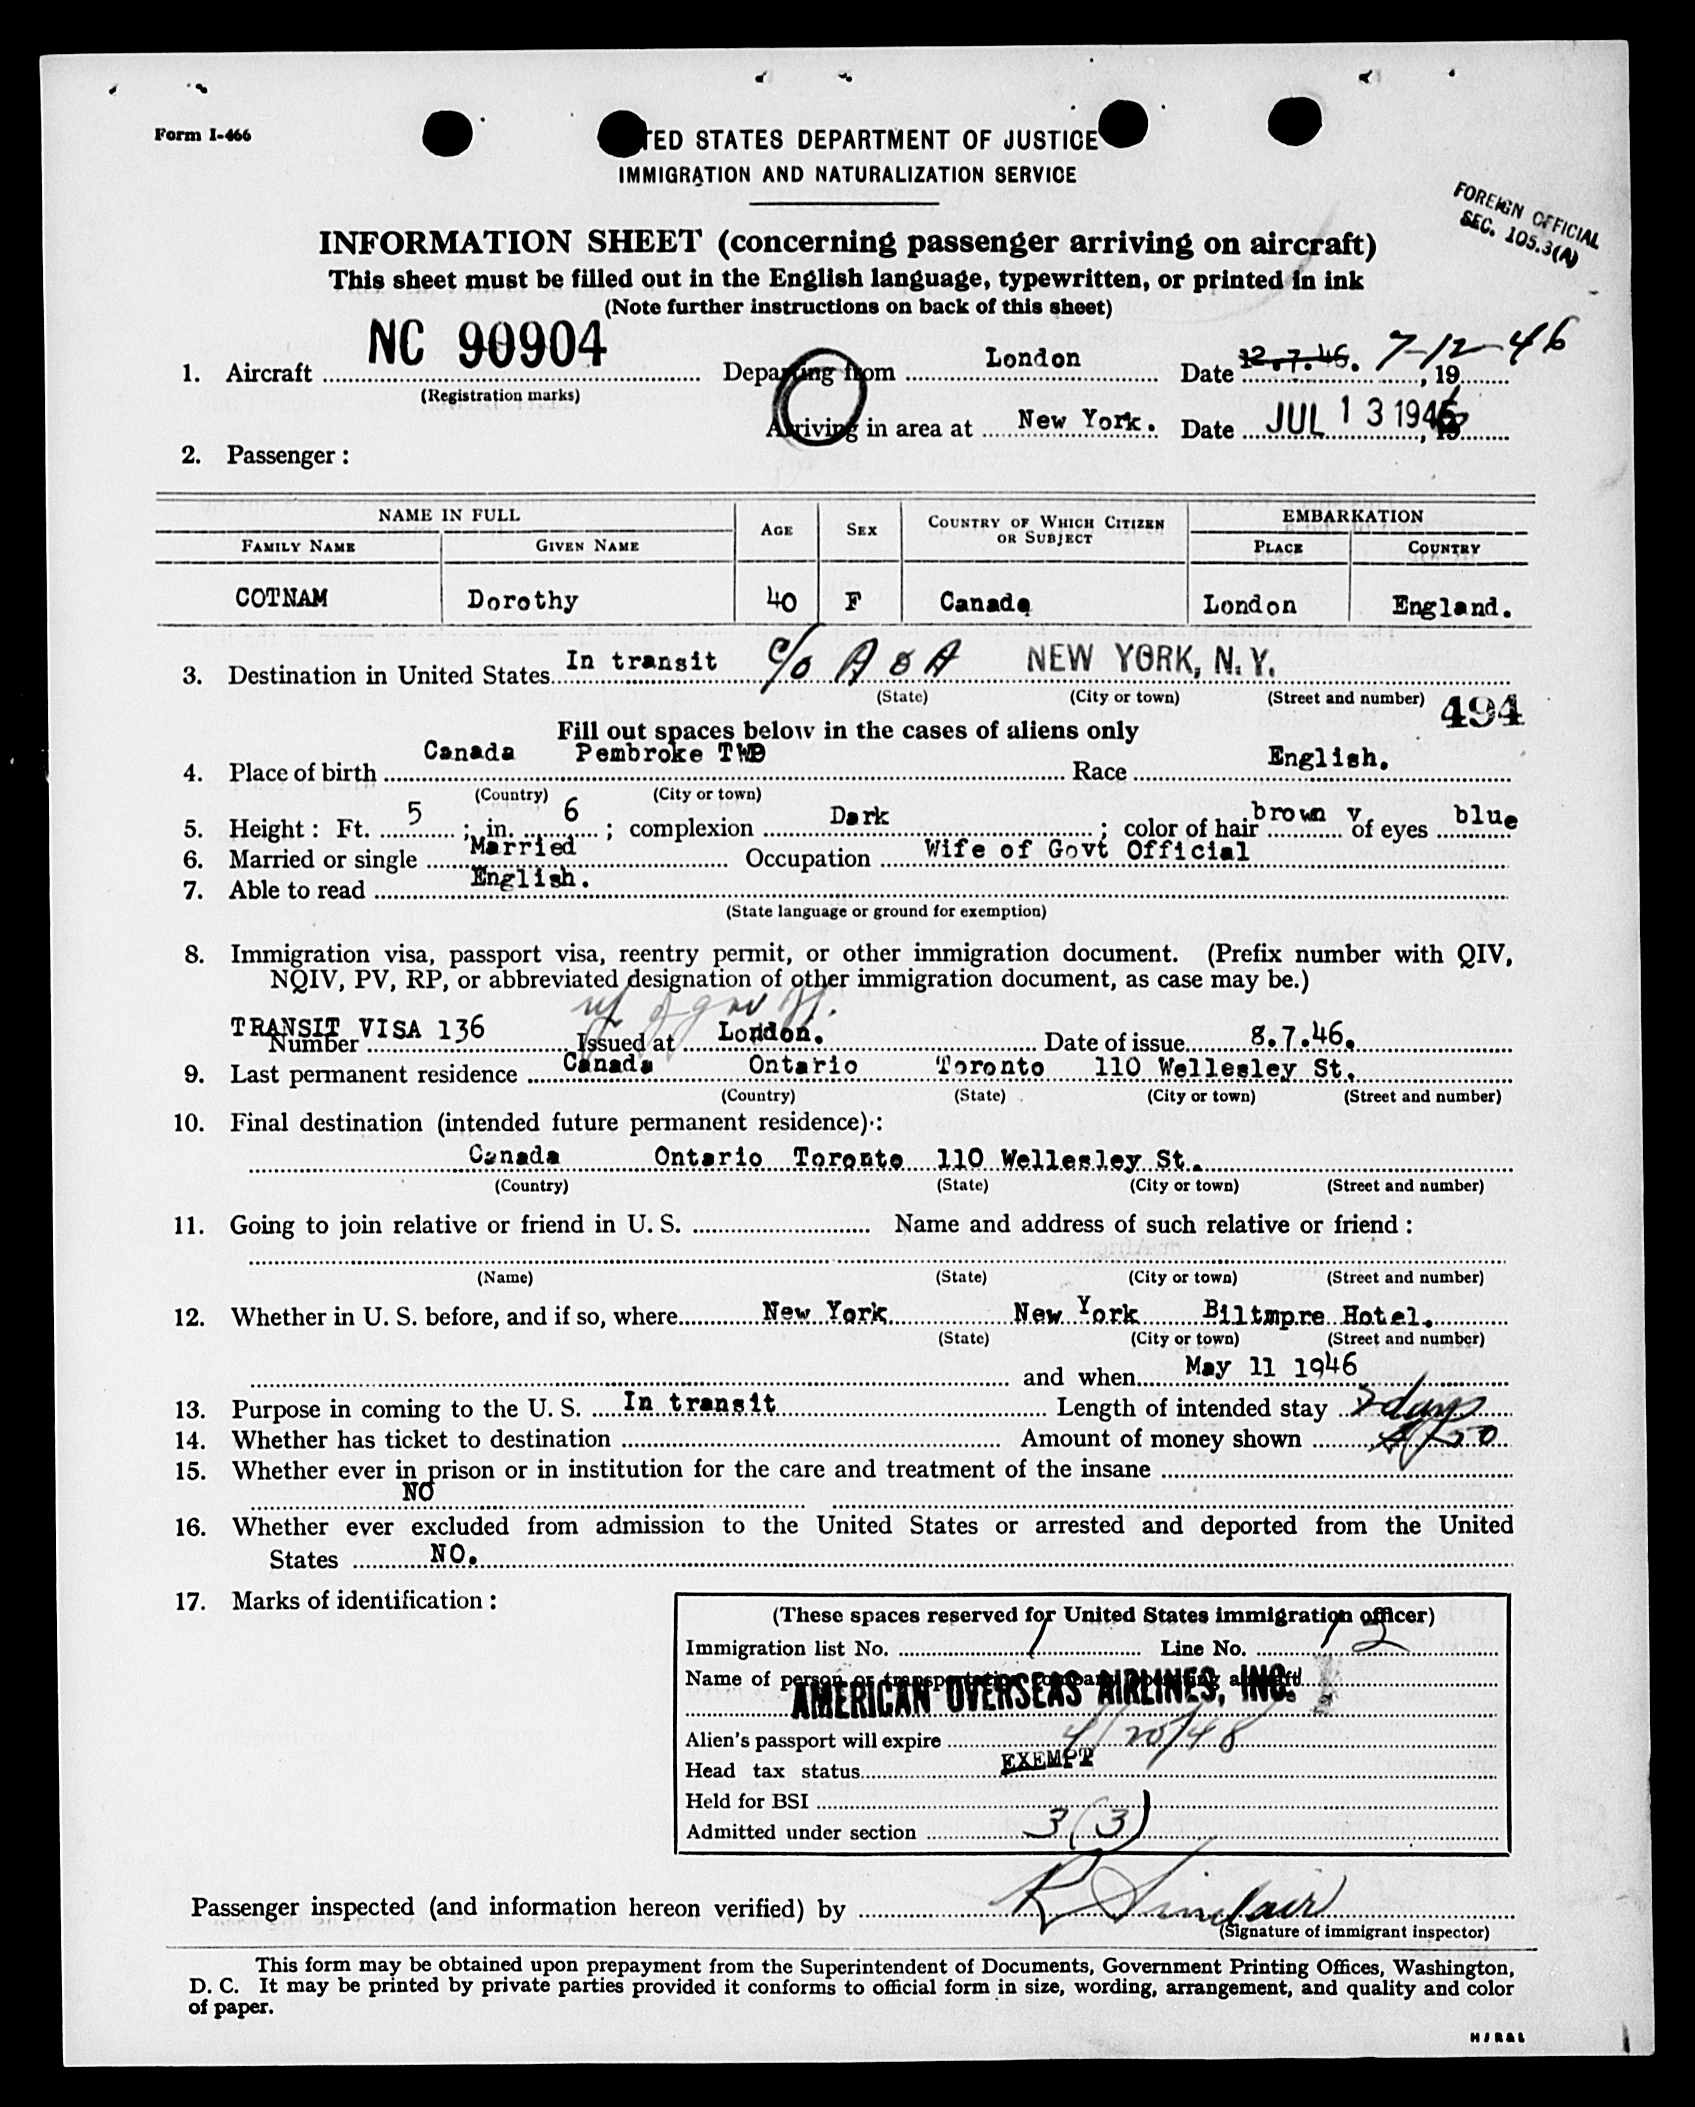 Form I-466
TED STATES DEPARTMENT OF JUSTICE
IMMIGRATION AND NATURALIZATION SERVICE
FOREIGN OFFICIAL
SEC. 105.3(A)
INFORMATION SHEET (concerning passenger arriving on aircraft)
This sheet must be filled out in the English language, typewritten, or printed in ink
(Note further instructions on back of this sheet)
1. Aircraft NC 90904 Departing from London Date 12.7.46. 7-12-46, 19
(Registration marks)
Arriving in area at New York. Date JUL 13 1946, 19
2. Passenger:
NAME IN FULL AGE SEX COUNTRY OF WHICH CITIZEN OR SUBJECT EMBARKATION
FAMILY NAME GIVEN NAME PLACE COUNTRY
COTNAM Dorothy 40 F Canada London England.
3. Destination in United States In transit c/o A O A NEW YORK, N.Y.
(State) (City or town) (Street and number) 494
Fill out spaces below in the cases of aliens only
4. Place of birth Canada Pembroke TWP Race English.
(Country) (City or town)
5. Height: Ft. 5; in. 6; complexion Dark; color of hair brown of eyes blue
6. Married or single Married Occupation Wife of Govt Official
7. Able to read English.
(State language or ground for exemption)
8. Immigration visa, passport visa, reentry permit, or other immigration document. (Prefix number with QIV,
NQIV, PV, RP, or abbreviated designation of other immigration document, as case may be.)
Number TRANSIT VISA 136 Issued at London. Date of issue 8.7.46.
9. Last permanent residence Canada Ontario Toronto 110 Wellesley St.
(Country) (State) (City or town) (Street and number)
10. Final destination (intended future permanent residence):
Canada Ontario Toronto 110 Wellesley St.
(Country) (State) (City or town) (Street and number)
11. Going to join relative or friend in U. S. Name and address of such relative or friend:
(Name) (State) (City or town) (Street and number)
12. Whether in U. S. before, and if so, where New York New York Biltmpre Hotel.
(State) (City or town) (Street and number)
and when May 11 1946
13. Purpose in coming to the U. S. In transit Length of intended stay days
14. Whether has ticket to destination Amount of money shown
15. Whether ever in prison or in institution for the care and treatment of the insane
NO
16. Whether ever excluded from admission to the United States or arrested and deported from the United
States NO.
17. Marks of identification:
(These spaces reserved for United States immigration officer)
Immigration list No. 1 Line No. 12
Name of person or transportation company operating aircraft
AMERICAN OVERSEAS AIRLINES, INC.
Alien's passport will expire 4/20/48
Head tax status EXEMPT
Held for BSI
Admitted under section 3(3)
Passenger inspected (and information hereon verified) by R Sinclair
(Signature of immigrant inspector)
This form may be obtained upon prepayment from the Superintendent of Documents, Government Printing Offices, Washington,
D. C. It may be printed by private parties provided it conforms to official form in size, wording, arrangement, and quality and color
of paper.